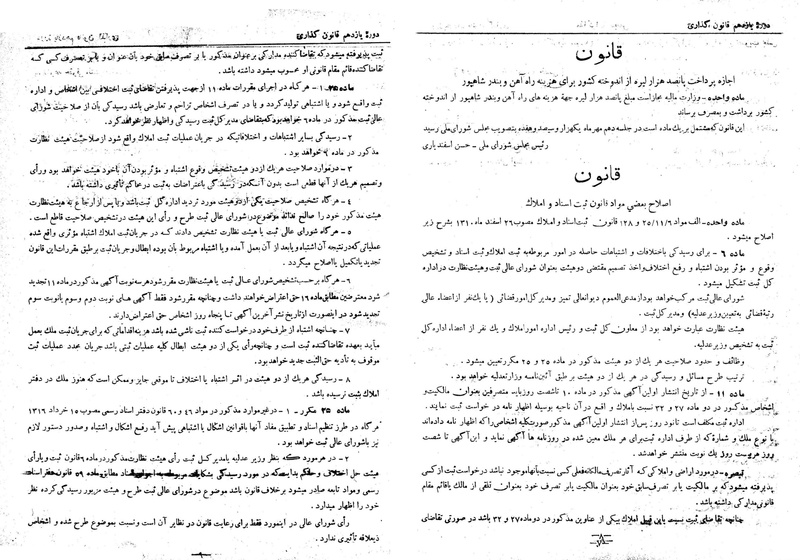 دورهٔ یازدهم قانون گذاری
قانون
اجازه پرداخت پانصد هزار لیره از اندوخته کشور برای هزینه راه آهن و بندر شاهپور
ماده واحده - وزارت مالیه مجاز است مبلغ پانصد هزار لیره جهة هزینه های راه آهن و بندر شاهپور از اندوخته
کشور برداشت و بمصرف برساند
این قانون که مشتمل بر یک ماده است در جلسه دهم مهر ماه یکهزار و سیصد و هفده بتصویب مجلس شورای ملی رسید
رئیس مجلس شورای ملی - حسن اسفندیاری
قانون
اصلاح بعضی مواد قانون ثبت اسناد و املاک
ماده واحده - الف مواد ۲۵/۱۱/۶ و ۱۲۸ قانون ثبت اسناد و املاک مصوب ۲۶ اسفند ماه ۱۳۱۰ بشرح زیر
اصلاح میشود .
ماده ۶ - برای رسیدگی باختلافات و اشتباهات حاصله در امور مربوطه به ثبت املاک و ثبت اسناد و تشخیص
وقوع و مؤثر بودن اشتباه و رفع اختلاف و اخذ تصمیم مقتضی دو هیئت بعنوان شورای عالی ثبت و هیئت نظارت در اداره
کل ثبت تشکیل میشود .
شورای عالی ثبت مرکب خواهد بود از مدعی العموم دیوانعالی تمیز و مدیر کل امور قضائی ( یا یک نفر از اعضاء عالی
رتبهٔ قضائی به تعیین وزیر عدلیه ) و مدیر کل ثبت .
هیئت نظارت عبارت خواهد بود از معاون کل ثبت و رئیس اداره امور املاک و یک نفر از اعضاء اداره کل
ثبت به تشخیص وزیر عدلیه .
وظائف و حدود صلاحیت هر یک از دو هیئت مذکور در ماده ۲۵ و ۲۵ مکرر تعیین میشود .
ترتیب طرح مسائل و رسیدگی در هر یک از دو هیئت بر طبق آئین نامه وزارت عدلیه خواهد بود .
ماده ۱۱ - از تاریخ انتشار اولین آگهی مذکور در ماده ۱۰ تا شصت روز باید متصرفین بعنوان مالکیت و
اشخاص مذکور در دو ماده ۲۷ و ۳۲ نسبت باملاک واقع در آن ناحیه بوسیله اظهار نامه درخواست ثبت نمایند .
اداره ثبت مکلف است تا نود روز پس از انتشار اولین آگهی مذکور صورت کلیه اشخاصی را که اظهار نامه داده اند
با نوع ملک و شماره که از طرف اداره ثبت برای هر ملک معین شده در روزنامه ها آگهی نماید و این آگهی تا شصت
روز هر بیست روز یک نوبت منتشر خواهد شد .
تبصره - در مورد اراضی و املاکی که آثار تصرف مالکانه فعلی کسی نسبت بآنها موجود نباشد درخواست ثبت از کسی
پذیرفته میشود که بر مالکیت یا بر تصرف سابق خود بعنوان مالکیت یا بر تصرف خود بعنوان تلقی از مالک یا قائم مقام
قانونی مدارکی داشته باشد .
چنانچه تقاضای ثبت نسبت باین قبیل املاک بیکی از عناوین مذکور در دو ماده ۲۷ و ۳۲ باشد در صورتی تقاضای
دورهٔ یازدهم قانون گذاری
ثبت پذیرفته میشود که تقاضا کننده مدارکی بر عنوان مذکور یا بر تصرف سابق خود بآن عنوان و یا بر تصرف کسی که
تقاضا کننده قائم مقام قانونی او محسوب میشود داشته باشد .
ماده ۲۵ - ۱ - هر گاه در اجرای مقررات ماده ۱۱ از جهت پذیرفتن تقاضای ثبت اختلافی بین اشخاص و اداره
ثبت واقع شود و یا اشتباهی تولید گردد و یا در تصرف اشخاص تزاحم و تعارض باشد رسیدگی بآن از صلاحیت شورای
عالی ثبت مذکور در ماده ۶ خواهد بود که بتقاضای مدیر کل ثبت رسیدگی و اظهار نظر خواهد کرد .
۲ - رسیدگی بسایر اشتباهات و اختلافاتیکه در جریان عملیات ثبت املاک واقع شود از صلاحیت هیئت نظارت
مذکور در ماده ۶ خواهد بود .
۳ - در موارد صلاحیت هر یک از دو هیئت تشخیص وقوع اشتباه و مؤثر بودن آن با خود هیئت خواهد بود و رأی
و تصمیم هر یک از آنها قطعی است بدون آنکه در رسیدگی باعتراضات به ثبت در محاکم تأثیری داشته باشد .
۴ - هر گاه تشخیص صلاحیت یکی از دو هیئت مورد تردید اداره کل ثبت باشد و یا پس از ارجاع به هیئت نظارت
هیئت مذکور خود را صالح نداند موضوع در شورای عالی ثبت طرح و رأی این هیئت در تشخیص صلاحیت قاطع است .
۵ - هر گاه شورای عالی ثبت یا هیئت نظارت تشخیص دادند که در جریان ثبت املاک اشتباه مؤثری واقع شده
عملیاتی که در نتیجه آن اشتباه و یا بعد از آن بعمل آمده و با اشتباه مربوط بآن بوده ابطال و جریان ثبت بر طبق مقررات این قانون
تجدید یا تکمیل یا اصلاح میگردد .
۶ - هر گاه بر حسب تشخیص شورای عالی ثبت یا هیئت نظارت مقرر شود هر سه نوبت آگهی مذکور در ماده ۱۱ تجدید
شود معترضین مطابق ماده ۱۶ حق اعتراض خواهند داشت و چنانچه مقرر شود فقط آگهی های نوبت دوم و سوم یا نوبت سوم
تجدید شود در اینصورت از تاریخ نشر آخرین آگهی تا پنجاه روز اشخاص حق اعتراض دارند .
۷ - چنانچه اشتباه از طرف خود درخواست کننده ثبت ناشی شده باشد هزینه اقداماتی که برای جریان ثبت ملک بعمل
میآید بعهده تقاضا کننده ثبت است و چنانچه رأی یکی از دو هیئت ابطال کلیه عملیات ثبتی باشد جریان مجدد عملیات ثبت
موقوف به تادیه حق الثبت جدید خواهد بود .
۸ - رسیدگی هر یک از دو هیئت در اثر اشتباه یا اختلاف تا موقعی جایز و ممکن است که هنوز ملک در دفتر
املاک ثبت نرسیده باشد .
ماده ۲۵ مکرر - ۱ - در غیر موارد مذکور در مواد ۴۶ و ۶۰ قانون دفتر اسناد رسمی مصوب ۱۵ خرداد ۱۳۱۶
هر گاه در طرز تنظیم اسناد و تطبیق مفاد آنها با قوانین اشکال یا اشتباهی پیش آید رفع اشکال و اشتباه و صدور دستور لازم
نیز با شورای عالی ثبت خواهد بود .
۲ - در مورد که بنظر وزیر عدلیه یا مدیر کل ثبت رأی هیئت نظارت مذکور در ماده ۶ قانون ثبت و یا رأی
هیئت حل اختلاف و حکم بدایت که در مورد رسیدگی بشکایات مربوطه به اجراء اسناد مطابق ماده ۵۹ قانون دفتر اسناد
رسمی و مواد تابعه صادر میشود بر خلاف قانون باشد موضوع در شورای عالی ثبت طرح و هیئت مزبور رسیدگی کرده نظر
خود را اظهار میدارد .
رأی شورای عالی در اینمورد فقط برای رعایت قانون در نظایر آن است و نسبت بموضوع طرح شده و اشخاص
ذیعلاقه تأثیری ندارد .